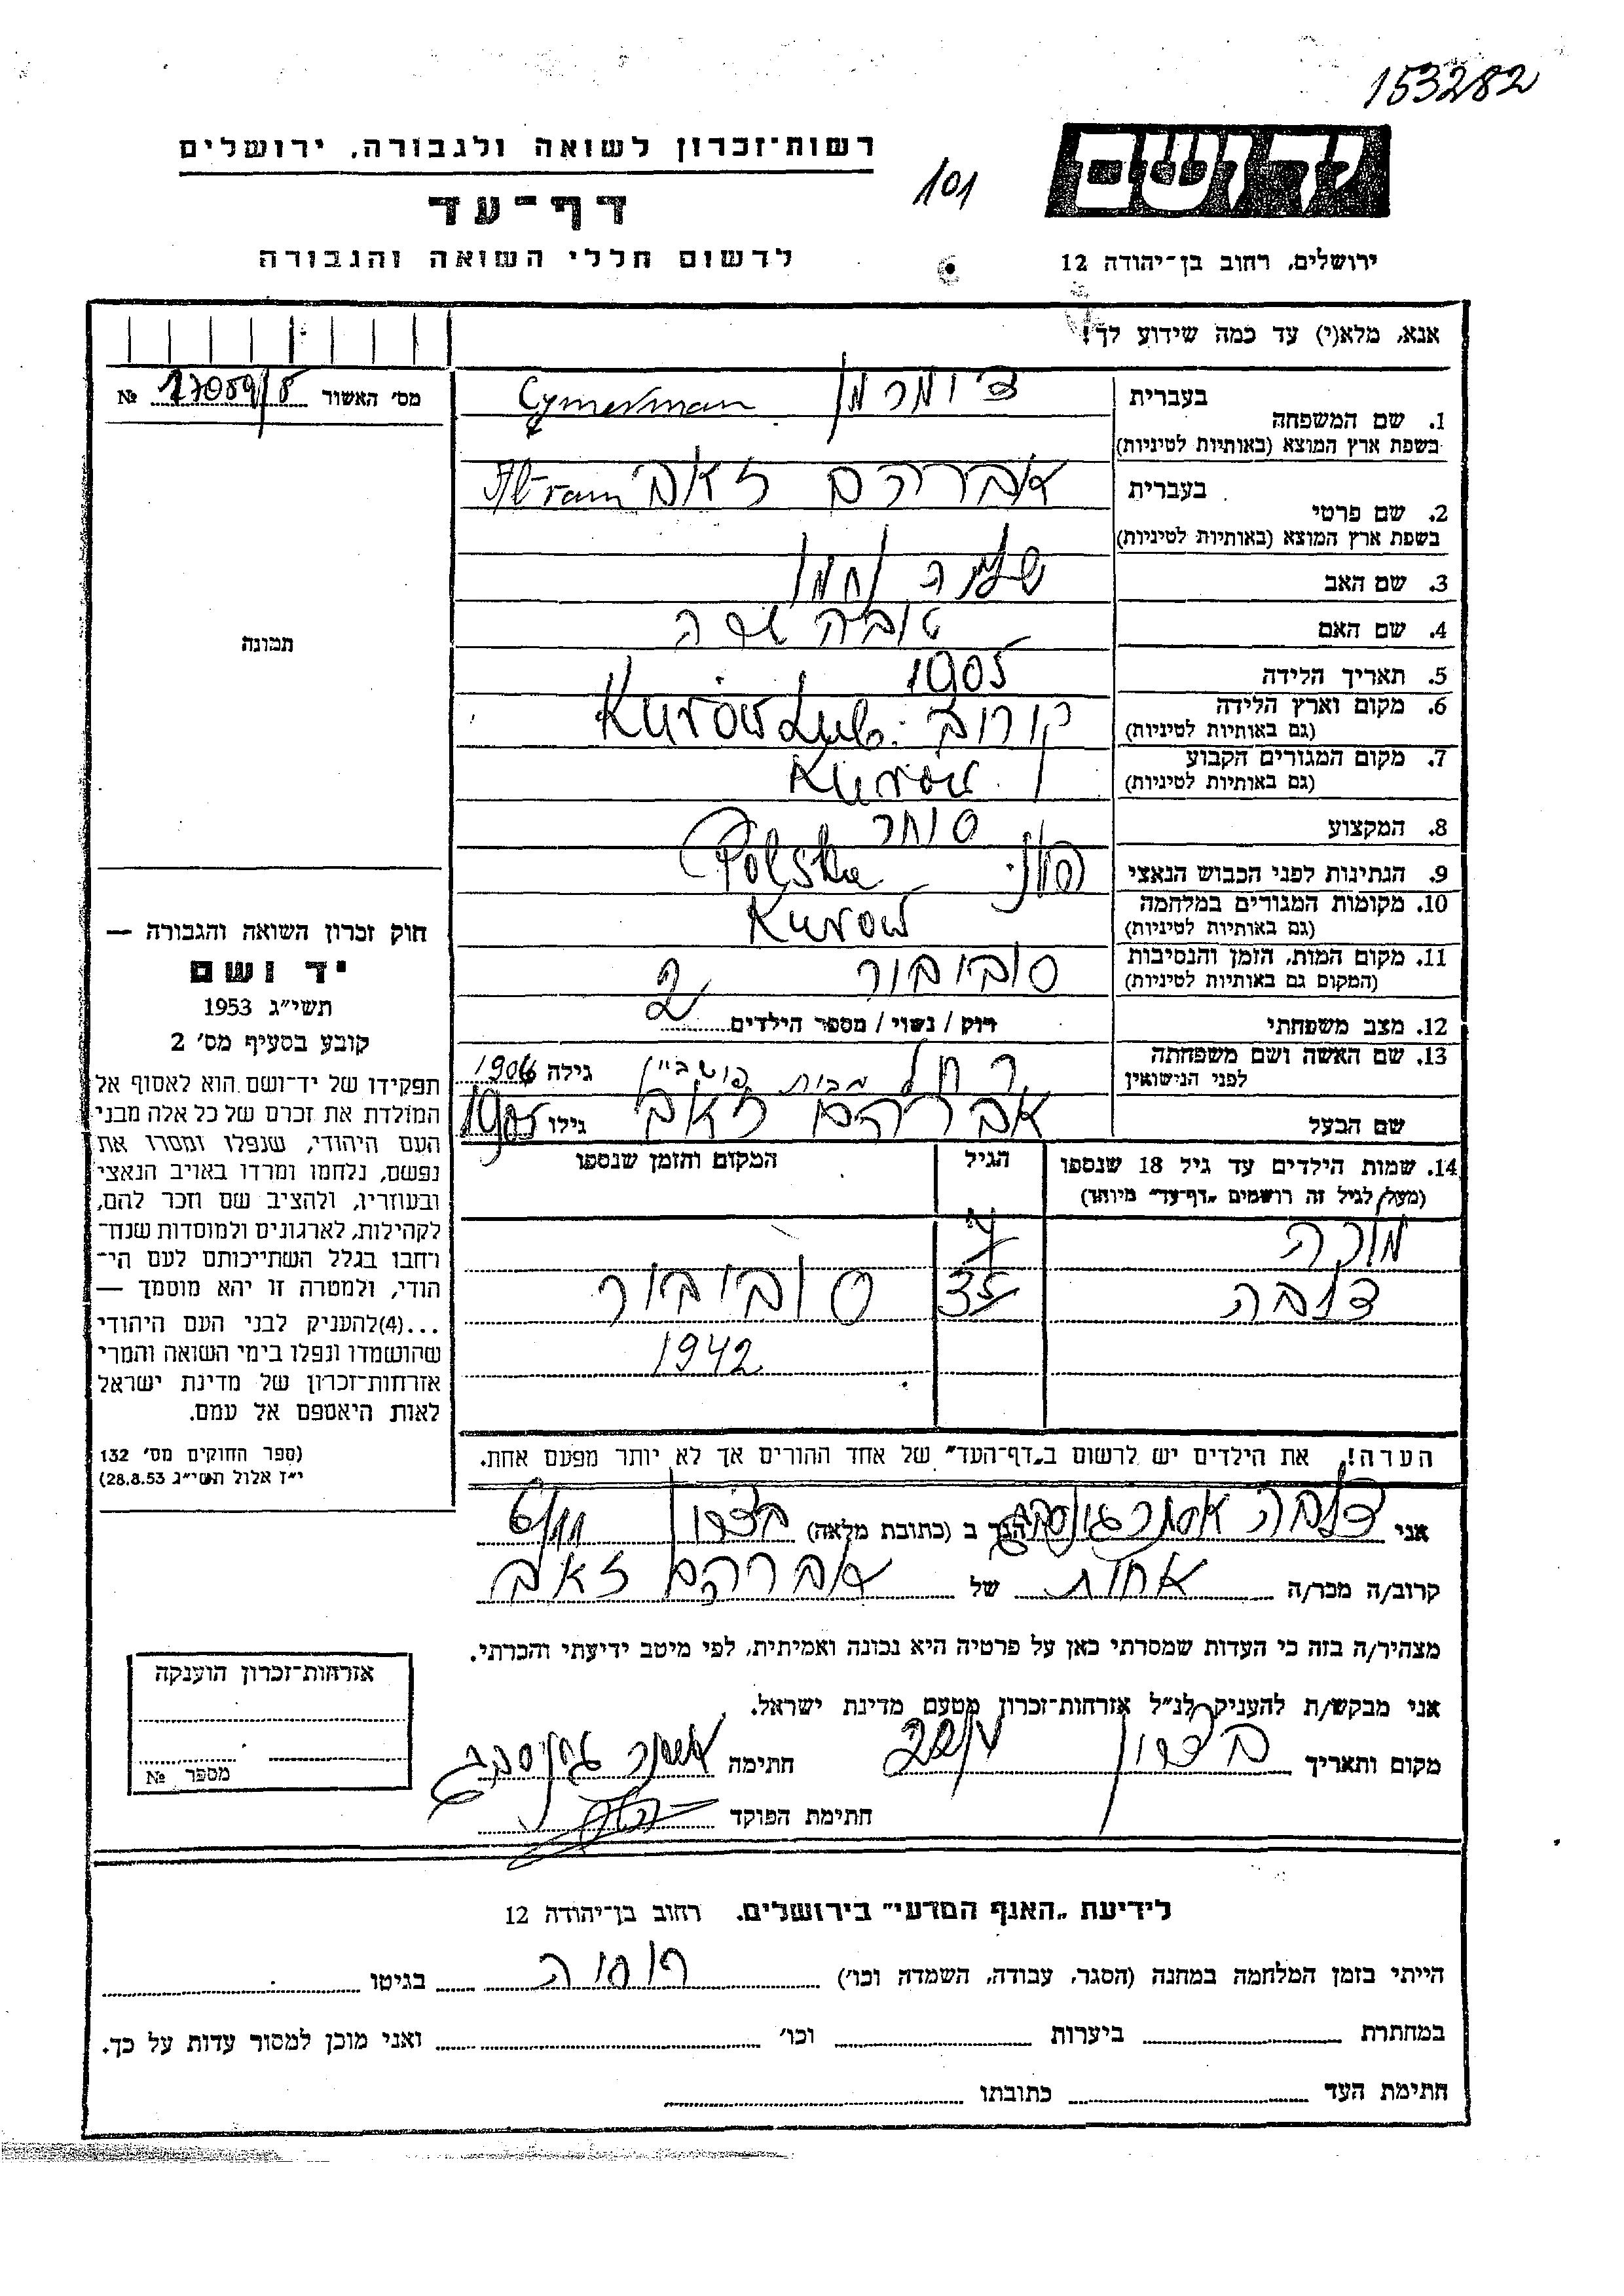 153282
רשות־זכרון לשואה ולגבורה, ירושלים
101
יד ושם
דף־עד
לרשום חללי השואה והגבורה
ירושלים, רחוב בן־יהודה 12
אנא, מלא(י) עד כמה שידוע לך!
מס׳ האשור № 17059/8
בעברית
צימרמן Cymerman
1. שם המשפחה
בשפת ארץ המוצא (באותיות לטיניות)
בעברית
אברהם זאב Abram
2. שם פרטי
בשפת ארץ המוצא (באותיות לטיניות)
3. שם האב שלמה נחמן
4. שם האם טובה
5. תאריך הלידה 1905
6. מקום וארץ הלידה קורוב Kurów Lub.
(גם באותיות לטיניות)
7. מקום המגורים הקבוע Kurów
(גם באותיות לטיניות)
8. המקצוע סוחר
9. הנתינות לפני הכבוש הנאצי Polska
10. מקומות המגורים במלחמה Kurow
(גם באותיות לטיניות)
11. מקום המות, הזמן והנסיבות סוביבור
(המקום גם באותיות לטיניות)
12. מצב משפחתי רוק / נשוי / מספר הילדים 2
13. שם האשה ושם משפחתה רחל מבית גילה 1906
לפני הנישואין
שם הבעל אברהם זאב גילו 1905
14. שמות הילדים עד גיל 18 שנספו הגיל המקום והזמן שנספו
(מעל לגיל זה רושמים „דף־עד״ מיוחד)
צובה סוביבור
1942
הערה! את הילדים יש לרשום ב„דף־העד״ של אחד ההורים אך לא יותר מפעם אחת.
אני אסתר הגר ב (כתובת מלאה) בצרון
קרוב/ה מכר/ה אחות של אברהם זאב
מצהיר/ה בזה כי העדות שמסרתי כאן על פרטיה היא נכונה ואמיתית, לפי מיטב ידיעתי והכרתי.
אני מבקש/ת להעניק לנ״ל אזרחות־זכרון מטעם מדינת ישראל.
מקום ותאריך בצרון חתימה אסתר
חתימת הפוקד
תמונה
חוק זכרון השואה והגבורה —
יד ושם
תשי״ג 1953
קובע בסעיף מס׳ 2
תפקידו של יד־ושם הוא לאסוף אל
המולדת את זכרם של כל אלה מבני
העם היהודי, שנפלו ומסרו את
נפשם, נלחמו ומרדו באויב הנאצי
ובעוזריו, ולהציב שם וזכר להם,
לקהילות, לארגונים ולמוסדות שנח־
רחבו בגלל השתייכותם לעם הי־
הודי, ולמטרה זו יהא מוסמך —
...(4)להעניק לבני העם היהודי
שהושמדו ונפלו בימי השואה והמרי
אזרחות־זכרון של מדינת ישראל
לאות היאספם אל עמם.
(ספר החוקים מס׳ 132
י״ז אלול תשי״ג 28.8.53)
אזרחות־זכרון הוענקה
מספר №
לידיעת „האגף המדעי״ בירושלים, רחוב בן־יהודה 12
הייתי בזמן המלחמה במחנה (הסגר, עבודה, השמדה וכו׳) רוסיה בגיטו
במחתרת ביערות וכו׳ ואני מוכן למסור עדות על כך.
חתימת העד כתובתו